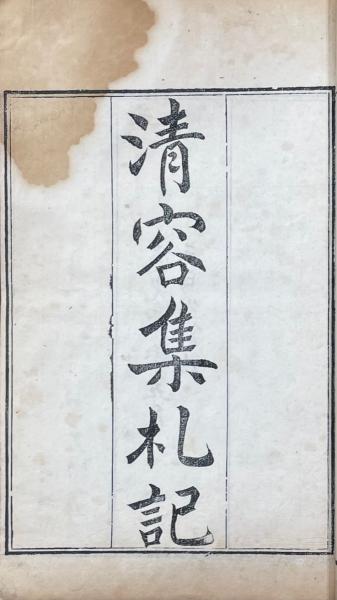 清容集札記